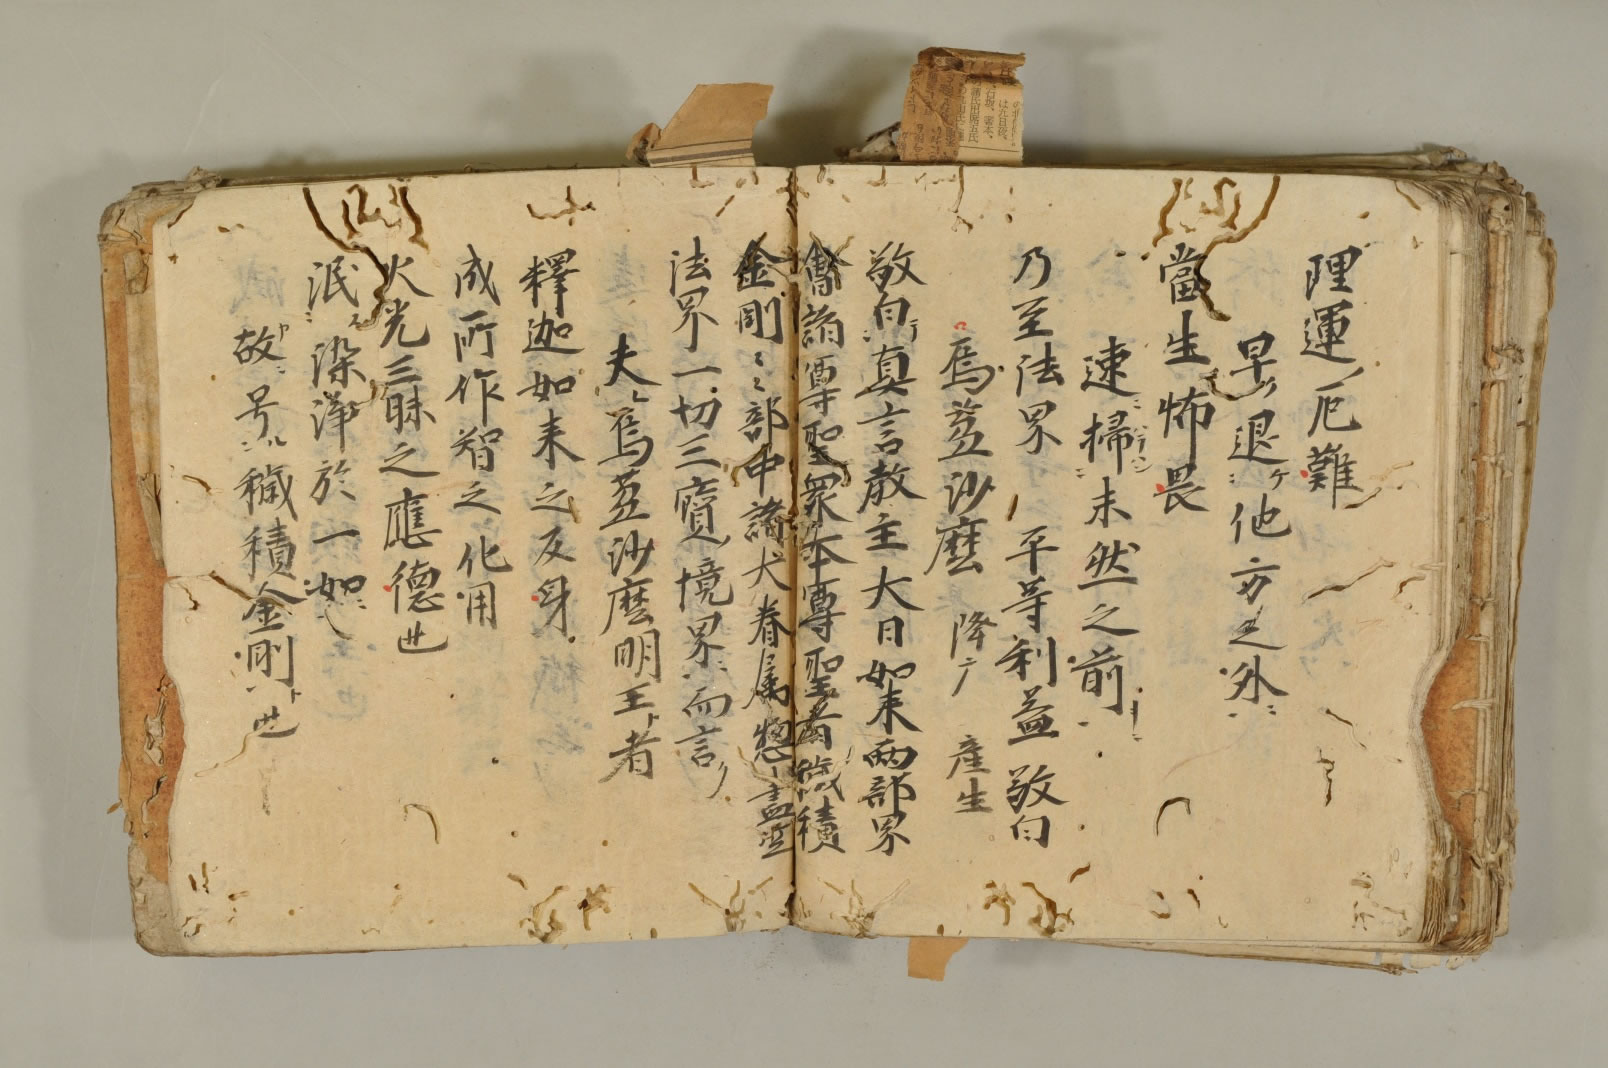 理運厄難
早ク退ケ他方之外
當生怖畏
速掃未然之前
乃至法界 平等利益 敬白
烏蒭沙麼 降 産生
敬白真言教主大日如来兩部界
會諸尊聖衆本尊聖者穢積
金剛〻〻部中諸大眷属惣盡空
法界一切三寳境界而言
夫烏蒭沙麼明王者
釋迦如来之反身
成所作智之化用
火光三昧之應徳也
泯染淨於一如
故号穢積金剛也